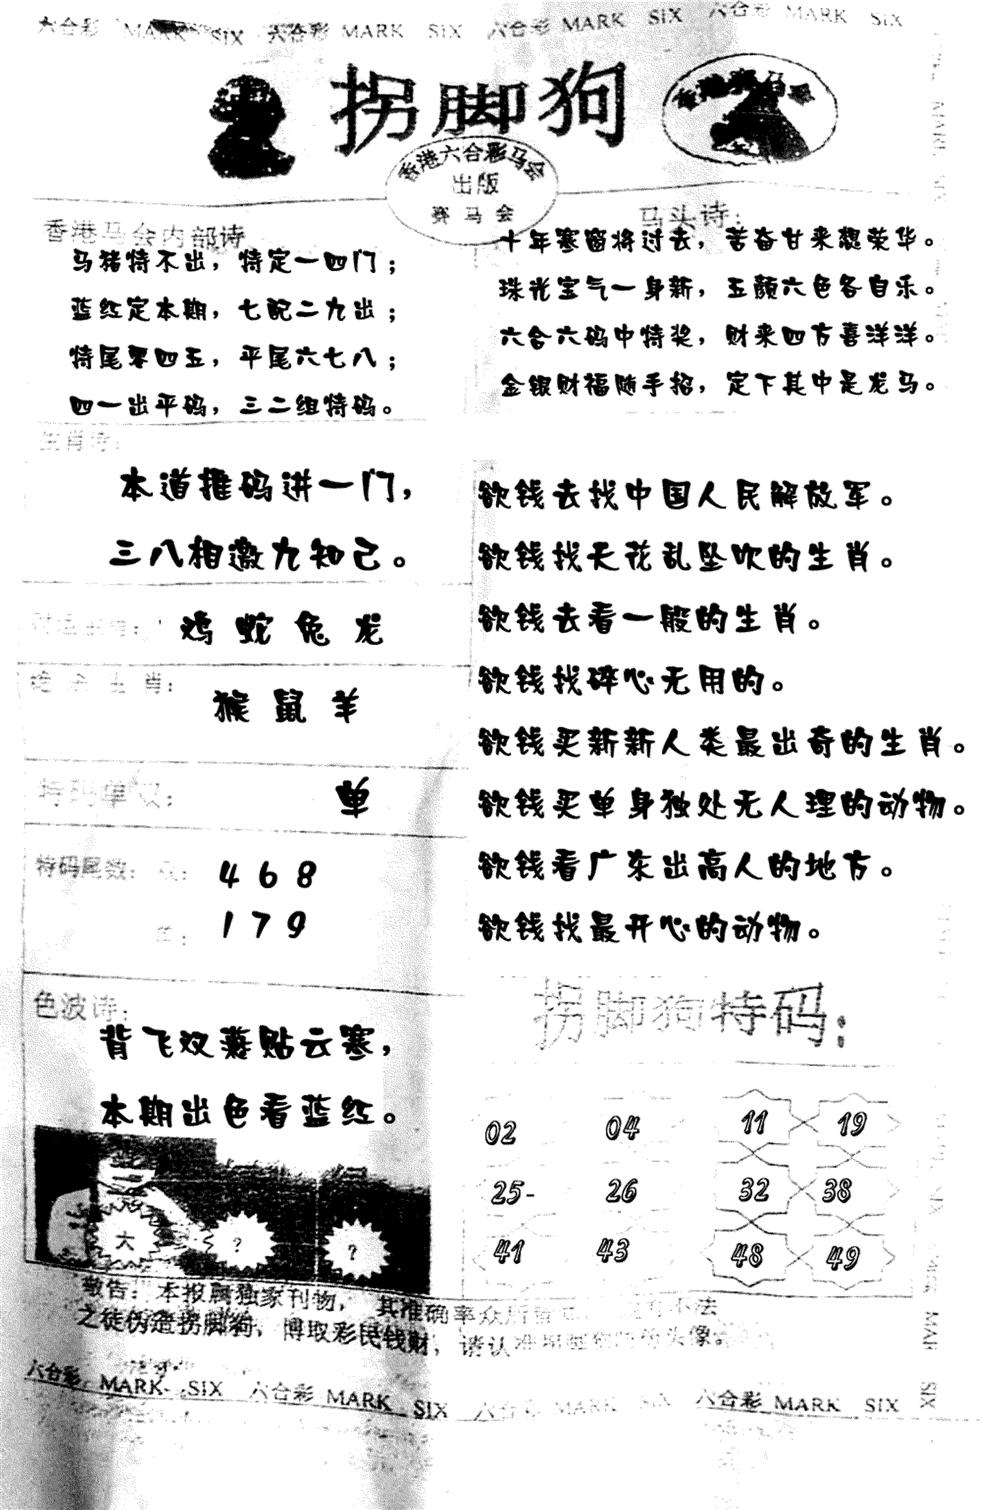 六合彩 MARK SIX 六合彩 MARK SIX 六合彩 MARK SIX 六合彩 MARK SIX
拐脚狗
香港赛马会
香港六合彩马会
出版
赛马会
香港马会内部诗
马猪特不出，特定一四门；
蓝红定本期，七配二九出；
特尾零四五，平尾六七八；
四一出平码，三二组特码。
马头诗：
十年寒窗将过去，苦奋甘来想荣华。
珠光宝气一身新，五颜六色各自乐。
六合六码中特奖，财来四方喜洋洋。
金银财福随手招，定下其中是龙马。
生肖诗：
本道推码进一门，
三八相邀九知己。
鸡 蛇 兔 龙
绝杀生肖：
猴 鼠 羊
特码单双：
单
特码尾数：双：
4 6 8
单：
1 7 9
色波诗：
背飞双燕贴云寒，
本期出色看蓝红。
大
?
?
欲钱去找中国人民解放军。
欲钱找天花乱坠吹的生肖。
欲钱去看一般的生肖。
欲钱找碎心无用的。
欲钱买新新人类最出奇的生肖。
欲钱买单身独处无人理的动物。
欲钱看广东出高人的地方。
欲钱找最开心的动物。
拐脚狗特码：
02 04 11 19
25- 26 32 38
41 43 48 49
敬告：本报属独家刊物，其准确率众所 不法
之徒伪造拐脚狗，博取彩民钱财，请认准 头像
六合彩 MARK SIX 六合彩 MARK SIX 六合彩 MARK SIX 六合彩 MARK SIX